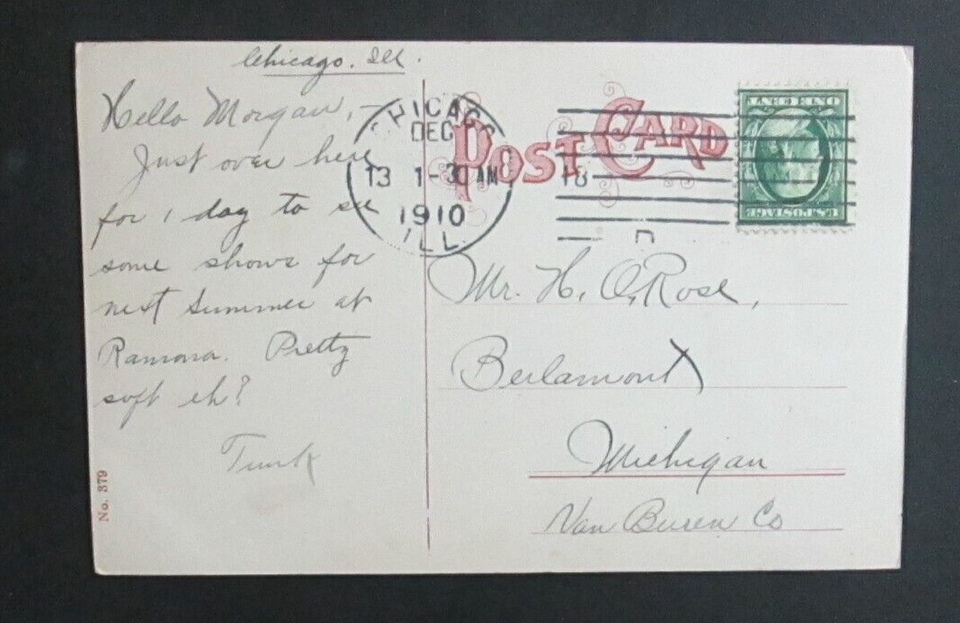 Chicago. Ill.
Hello Morgan, –
Just over here
for 1 day to see
some shows for
next Summer at
Ramona. Pretty
soft eh?
No. 379
CHICAGO
DEC
13 1-30 AM
1910
ILL.
18
D
POST CARD
ONE CENT
U.S. POSTAGE
Mr. H. O. Rose,
Berlamont
Michigan
Van Buren Co